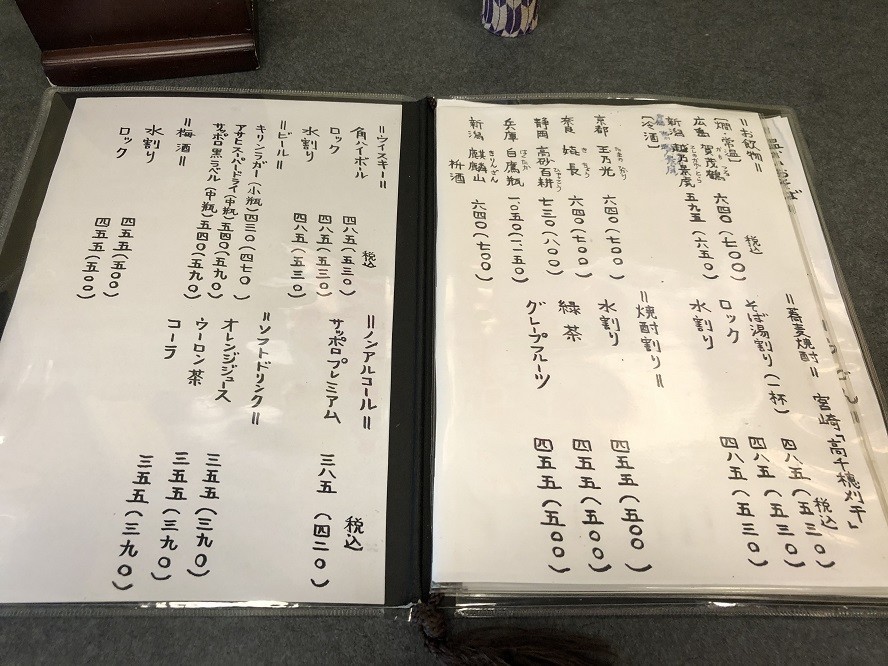 ＝お飲物＝ 税込
(燗・常温)
広島 賀茂鶴 六四〇(七〇〇)
新潟 越乃景虎 五九五(六五〇)
(冷酒)
京都 玉乃光 六四〇(七〇〇)
奈良 嬉長 六四〇(七〇〇)
静岡 高砂百耕 七三〇(八〇〇)
兵庫 白鷹瓶 一〇五〇(一一五〇)
新潟 麒麟山 枡酒 六四〇(七〇〇)
＝蕎麦焼酎＝ 宮崎「高千穂刈干」 税込
そば湯割り(一杯) 四八五(五三〇)
ロック 四八五(五三〇)
水割り 四八五(五三〇)
＝焼酎割り＝
水割り 四五五(五〇〇)
緑茶 四五五(五〇〇)
グレープフルーツ 四五五(五〇〇)
＝ウイスキー＝ 税込
角ハイボール 四八五(五三〇)
ロック 四八五(五三〇)
水割り 四八五(五三〇)
＝ビール＝
キリンラガー(小瓶) 四三〇(四七〇)
アサヒスーパードライ(中瓶) 五四〇(五九〇)
サッポロ黒ラベル(中瓶) 五四〇(五九〇)
＝梅酒＝
水割り 四五五(五〇〇)
ロック 四五五(五〇〇)
＝ノンアルコール＝ 税込
サッポロプレミアム 三八五(四二〇)
＝ソフトドリンク＝
オレンジジュース 三五五(三九〇)
ウーロン茶 三五五(三九〇)
コーラ 三五五(三九〇)